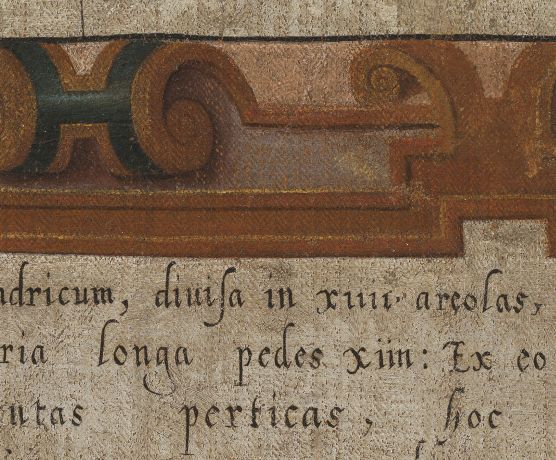 ndricum, diuiſa in xiiii· areolas,
ria longa pedes xiiii: Ex eo
utas perticas, hoc